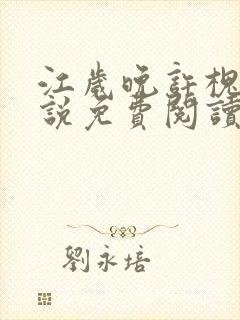 江歲晚許槐
說免費閱讀
劉永培